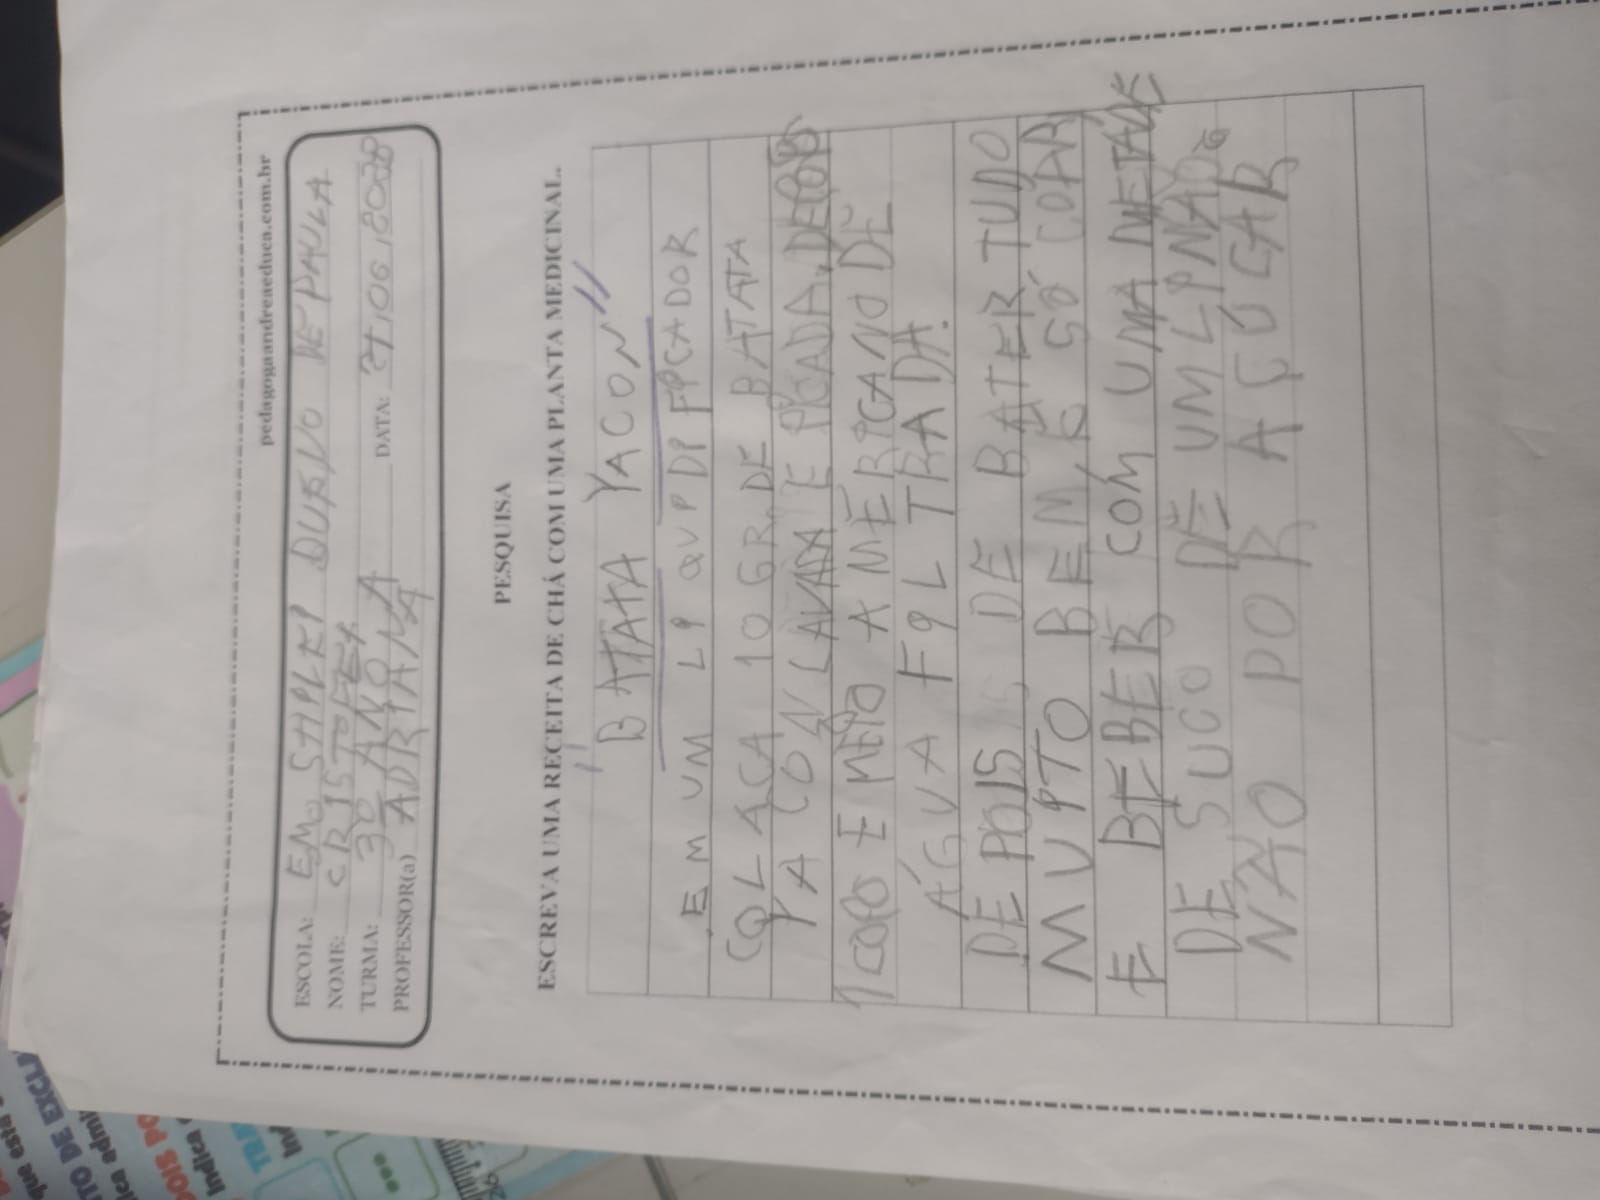 pedagogaandreaeduca.com.br
ESCOLA: EMO SHPLRP DURVO DE PAULA
NOME: CRISTOFER
TURMA: 3º ANO A DATA: 21,06,
PROFESSOR(a) ADRIANA
PESQUISA
ESCREVA UMA RECEITA DE CHÁ COM UMA PLANTA MEDICINAL.
"BATATA YACON"
EM UM LPQUPDPFPCADOR
COLACA 10 GR. DE BATATA
YACON LAVADA E PICADA, DEPOIS
1 COPO E MEIO AMÉRICANO DE
ÁGUA FPLTRADA.
DEPOIS DE BATER TUDO
MUPTO BEM, É SÓ COAR
E BEBER COM UMA METADE
DE SUCO DE UM LPMÃO
NÃO POR AÇÚCAR